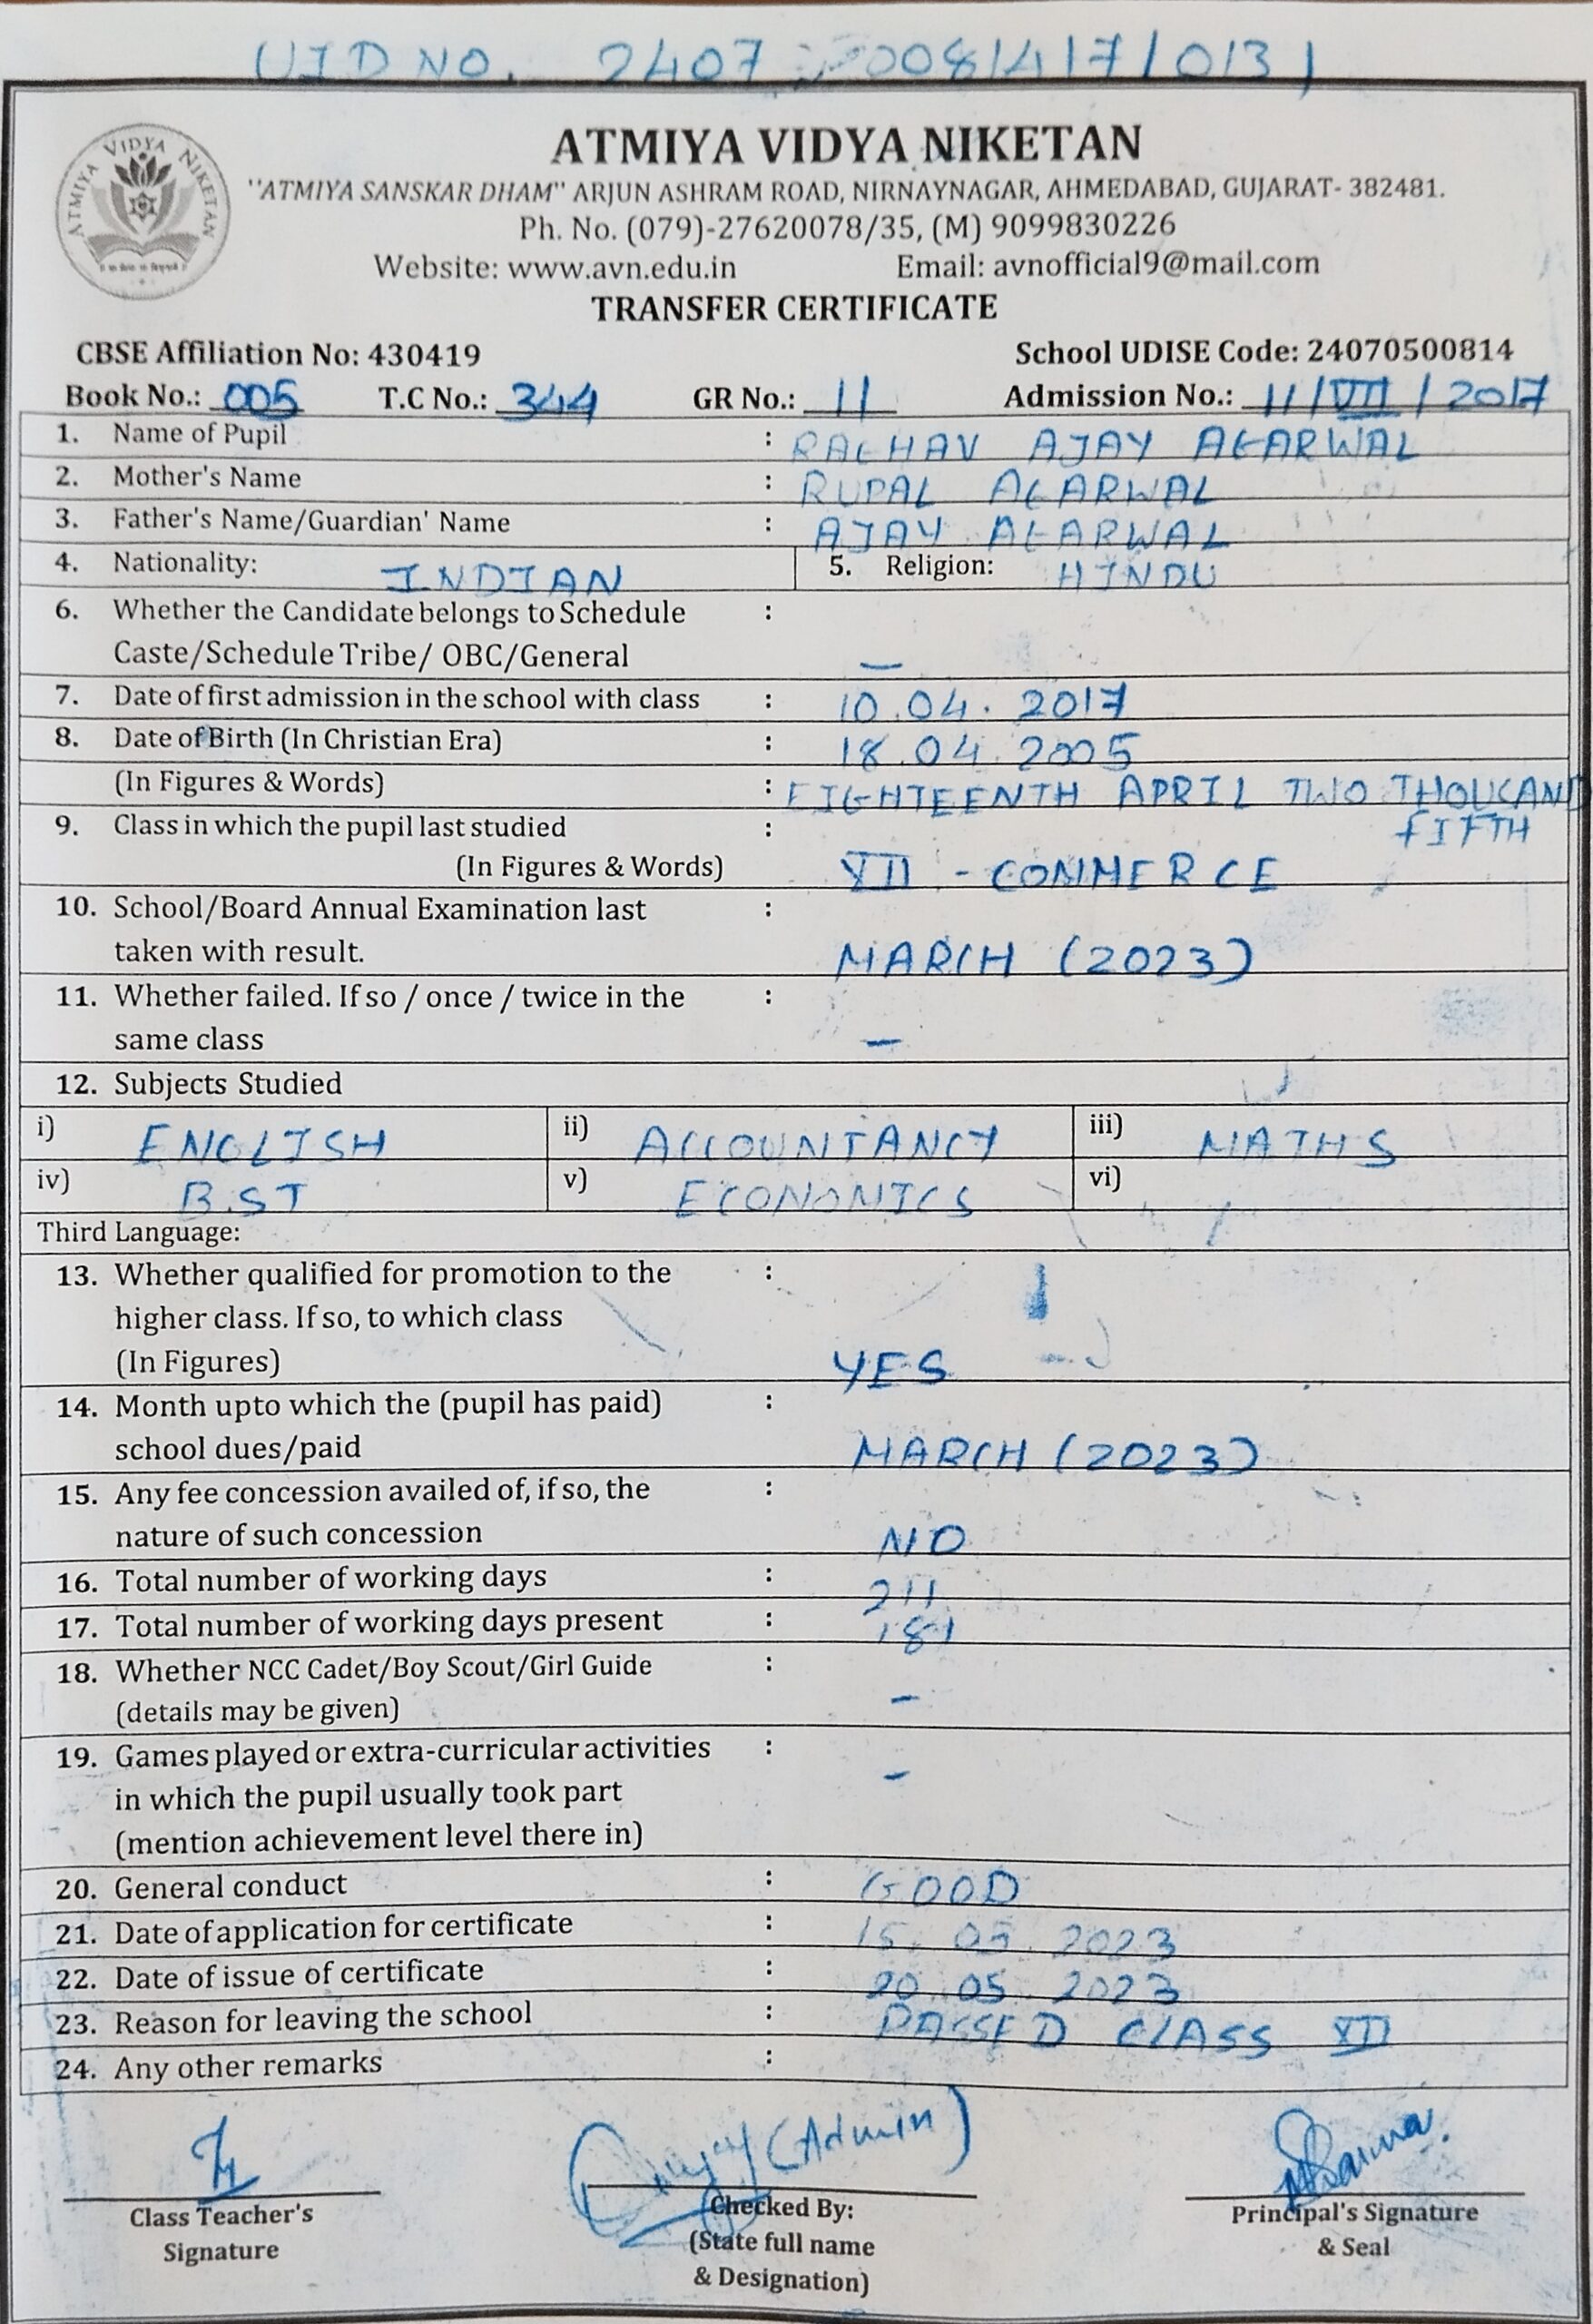 UID NO. 2407 0081417/013
ATMIYA VIDYA NIKETAN
ATMIYA VIDYA NIKETAN
"ATMIYA SANSKAR DHAM" ARJUN ASHRAM ROAD, NIRNAYNAGAR, AHMEDABAD, GUJARAT- 382481.
Ph. No. (079)-27620078/35, (M) 9099830226
Website: www.avn.edu.in Email: avnofficial9@mail.com
TRANSFER CERTIFICATE
CBSE Affiliation No: 430419 School UDISE Code: 24070500814
Book No.: 005 T.C No.: 344 GR No.: 11 Admission No.: 11/VII/2017
1. Name of Pupil : RAGHAV AJAY AGARWAL
2. Mother's Name : RUPAL AGARWAL
3. Father's Name/Guardian' Name : AJAY AGARWAL
4. Nationality: INDIAN 5. Religion: HINDU
6. Whether the Candidate belongs to Schedule :
Caste/Schedule Tribe/ OBC/General —
7. Date of first admission in the school with class : 10.04.2017
8. Date of Birth (In Christian Era) : 18.04.2005
(In Figures & Words) : EIGHTEENTH APRIL TWO THOUSAND
FIFTH
9. Class in which the pupil last studied :
(In Figures & Words) XII - COMMERCE
10. School/Board Annual Examination last :
taken with result. MARCH (2023)
11. Whether failed. If so / once / twice in the :
same class —
12. Subjects Studied
i) ENGLISH ii) ACCOUNTANCY iii) MATHS
iv) B.ST v) ECONOMICS vi)
Third Language:
13. Whether qualified for promotion to the :
higher class. If so, to which class
(In Figures) YES
14. Month upto which the (pupil has paid) :
school dues/paid MARCH (2023)
15. Any fee concession availed of, if so, the :
nature of such concession NO
16. Total number of working days : 211
17. Total number of working days present : 181
18. Whether NCC Cadet/Boy Scout/Girl Guide :
(details may be given) —
19. Games played or extra-curricular activities :
in which the pupil usually took part —
(mention achievement level there in)
20. General conduct : GOOD
21. Date of application for certificate : 15.05.2023
22. Date of issue of certificate : 20.05.2023
23. Reason for leaving the school : PASSED CLASS XII
24. Any other remarks :
(Admin)
Class Teacher's Checked By: Principal's Signature
Signature (State full name & Seal
& Designation)